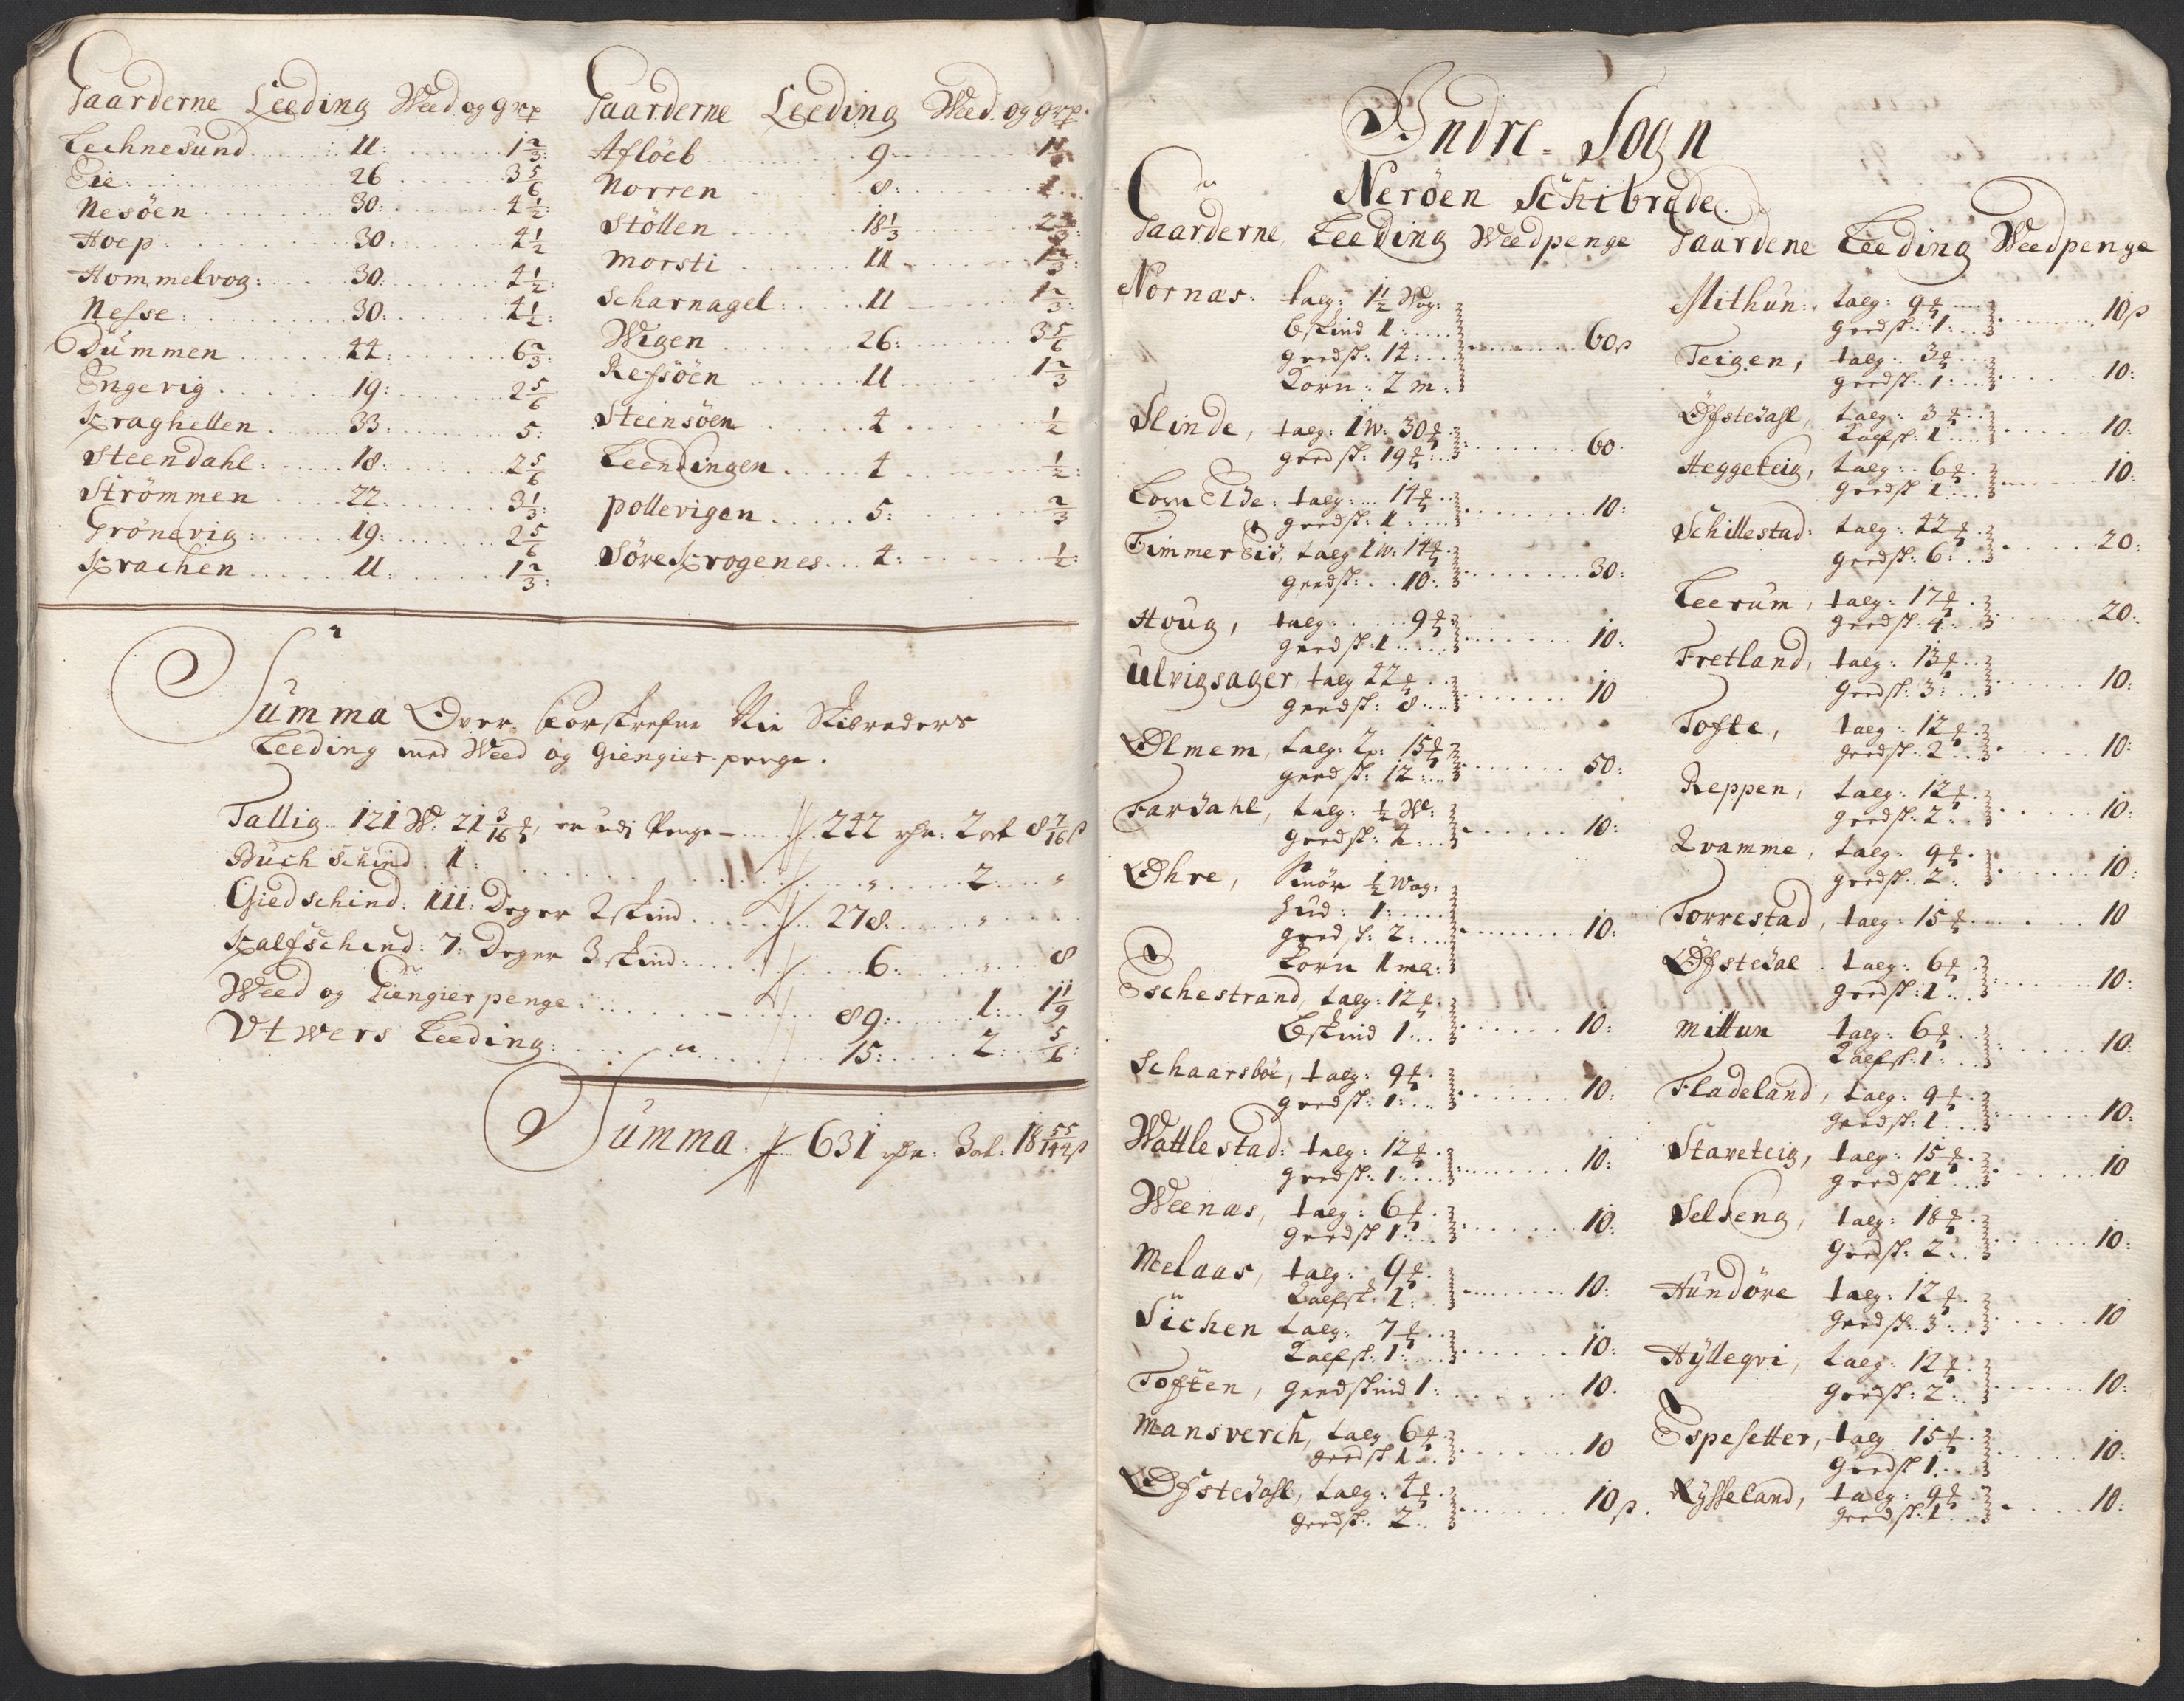 Gaarderne Leeding Weed og grp
Lechnesund 11: 1 2/3:
Eie: 26 3 5/6
Nesöen 30: 4 1/2:
Hoep: 30: 4 1/2
Hommelvog: 30: 4 1/2:
Nesse: 30: 4 1/2:
Dummen 44: 6 2/3:
Engevig 19: 2 5/6
Kraghellen 33: 5:
Steendahl: 18: 2 5/6
Strömmen 22: 3 1/3:
Grönevig: 19: 2 5/6
Krachen 11: 1 2/3:
Gaarderne Leeding Weed og grp.
Aflöeb 9:
Norren 8: 1
Stöllen 18 1/3 2 2/3:
Morsti 11 1 2/3:
Scharnagel: 11 1 2/3:
Wigen 26: 3 5/6
Refsöen 11 1 2/3
Steinsöen 4 1/2
Leendingen 4 1/2:
Pollevigen 5: 2/3
Söre Krogenes 4: 1/2:
Summa Over Forskrefne Nie Skibreders
Leeding med Weed og Giengier penge.
Tallig 121 W: 21 3/16 ℔, er udi Penge 242 rdr: 2 ort 8 7/16 s
Buch Schind: 1: " 2 "
Giedschind: 111: Deger 2 skind 278: "
Kalfschind: 7: Deger 3 skind: 6: " 8
Weed og Giengier penge: 89: 1: 1 1/9
Utwers Leeding: 15: 2: 5/6:
Summa: 631 rdr: 3 ort: 18 55/144 s
Indre Sogn
Neröen Schibrade
Gaarderne Leeding Weedpenge
Nornæs: talg: 1 1/2 Wog:
bskind 1:
giedsk: 14: 60 s
Korn: 2 m:
Slinde, talg: 1 W: 30 ℔
giedsk: 19 60
Lom Elde: talg: 14 ℔
giedsk: 1: 10:
Timmer Eid, talg 1 W: 14 ℔
giedsk: 10: 30:
Houg, talg: 9 ℔
giedsk: 1 10:
Ulvigsager, talg 22 ℔
giedsk: 8 10
Ølmem, talg: 2 p: 15 ℔
giedsk: 12: 50:
Fardahl, talg: 1/2 W:
giedsk: 4 10:
Øhre, Smör 1/2 Wog:
Hud: 1:
gied sk: 2: 10:
Korn 1 mæ:
Eschestrand, talg: 12 ℔
bskind 1 10:
Schaarsböe, talg: 9 ℔
giedsk: 1: 10:
Wattlestad: talg: 12 ℔
giedsk: 1: 10:
Weenæs, talg: 6 ℔
giedsk 1: 10:
Melaas, talg: 9 ℔
Kalfsk: 1: 10:
Sichen talg: 7 ℔
Kalfsk: 1: 10:
Toften, giedskind 1: 10.
Mansverch, talg 6 ℔
giedsk 1 10
Øfstedahl, talg: 4 ℔
giedsk: 2 10 s.
Gaardene Leeding Weedpenge
Mithun: talg: 9 ℔
giedsk: 1: 10 s
Teigen, talg: 3 ℔
giedsk: 1: 10:
Øfstedahl, talg: 3 ℔
Kalfsk: 1 10:
Heggeteig, talg: 6 ℔
giedsk 1 10:
Schillestad: talg: 22 ℔
giedsk: 6: 20:
Leerum, talg: 17 ℔
giedsk: 4: 20:
Fretland, talg: 13 ℔
giedsk: 3: 10:
Tofte, talg: 12 ℔
giedsk: 2 10:
Reppen, talg: 12 ℔
giedsk: 2: 10:
Qvamme, talg: 9 ℔
giedsk: 2: 10:
Torrestad, talg: 15 ℔ 10
Øfstedal talg: 6 ℔
giedsk: 1 10:
Mittun talg: 6 ℔
Kalfsk: 1: 10:
Fladeland, talg: 9 ℔
giedsk: 1 10:
Staveteig, talg: 15 ℔
giedsk 1 10
Selseng, talg: 18 ℔
giedsk: 2: 10:
Hundöre talg: 12 ℔
giedsk: 3: 10
Hÿlleqvi, talg: 12 ℔
giedsk: 2: 10:
Espesetter, talg 15 ℔
giedsk 1 10:
Rÿsseland, talg: 9 ℔
giedsk: 1 10: